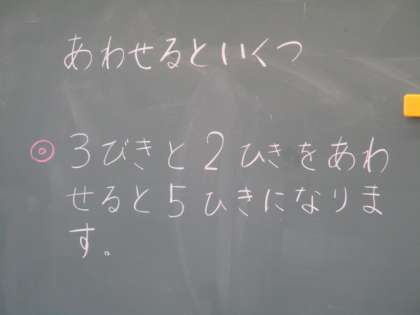 あわせるといくつ
◎ 3びきと2ひきをあわ
せると5ひきになりま
す。